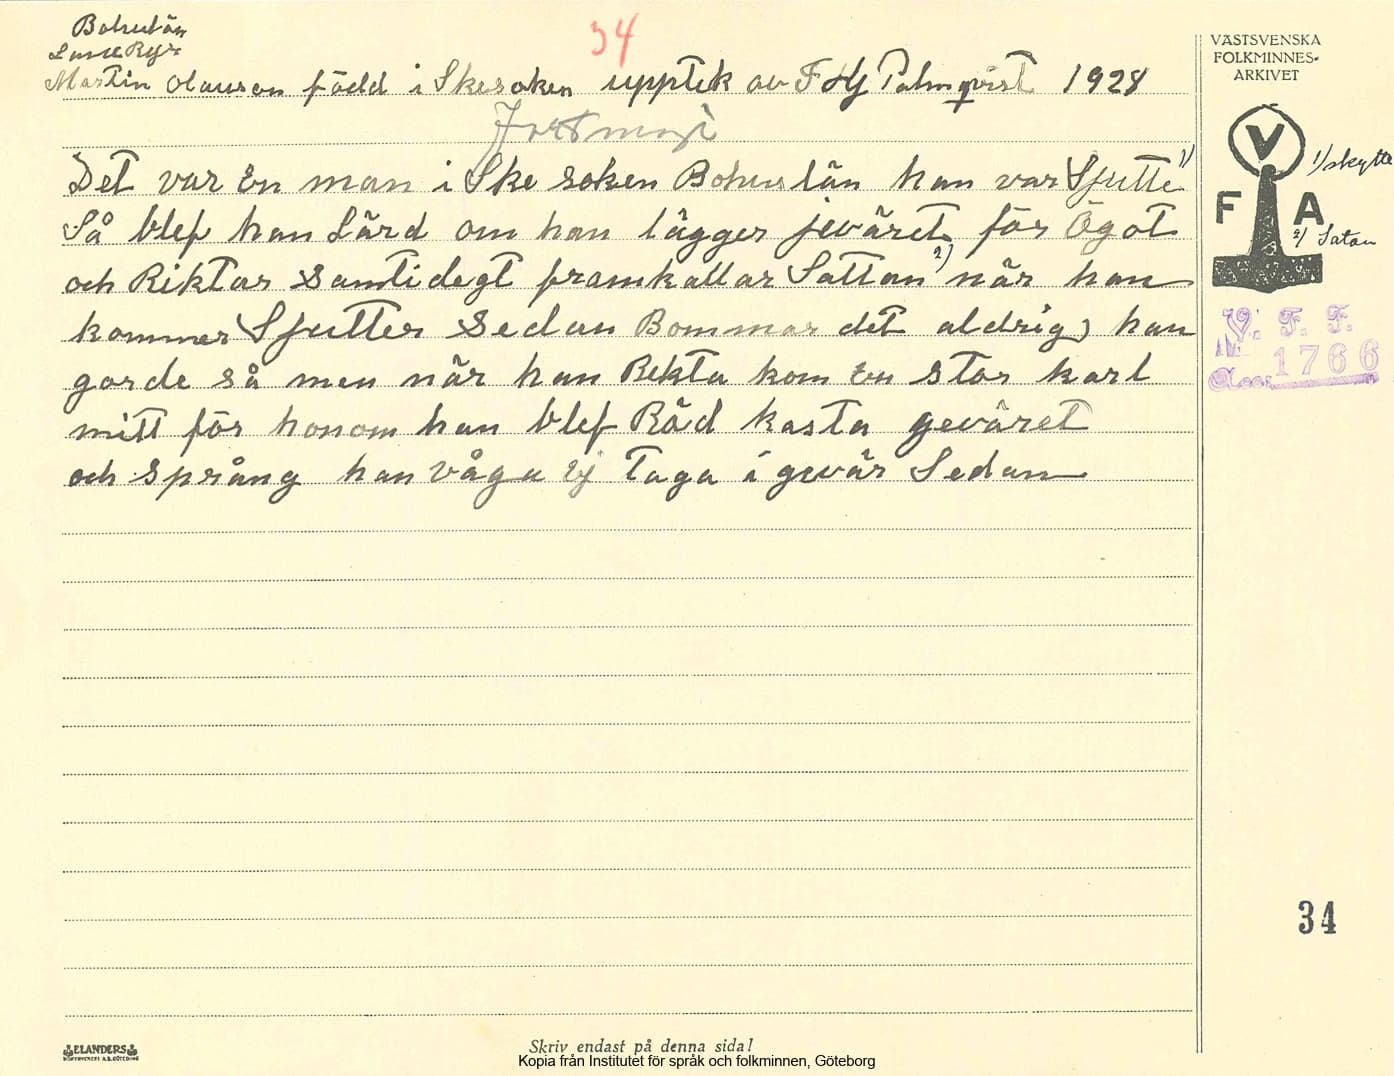 Bohuslän
34
VÄSTSVENSKA
FOLKMINNES-
ARKIVET
Martin Olausen född i Skesoken upptek av F Hj Palmqvist 1928
Det var En man i Ske soken Bohuslän han var Sjutte 1)
1/ skytte
Så blef han Lärd om han lägger jeväret för Ögot
V
F A
2/ Satan
och Riktar Samtidegt framkallar Sattan 2) när han
kommer Sjutter Sedan Bommar det aldrig, han
V. F. F.
gorde så men när han Rekta kom En Stor karl
Acc: 1766
mitt för honom han blef Räd kasta geväret
och Språng han våga Ej Taga i gevär Sedan
34
ELANDERS
BOKTRYCKERI A.B. GÖTEBORG
Skriv endast på denna sida!
Kopia från Institutet för språk och folkminnen, Göteborg